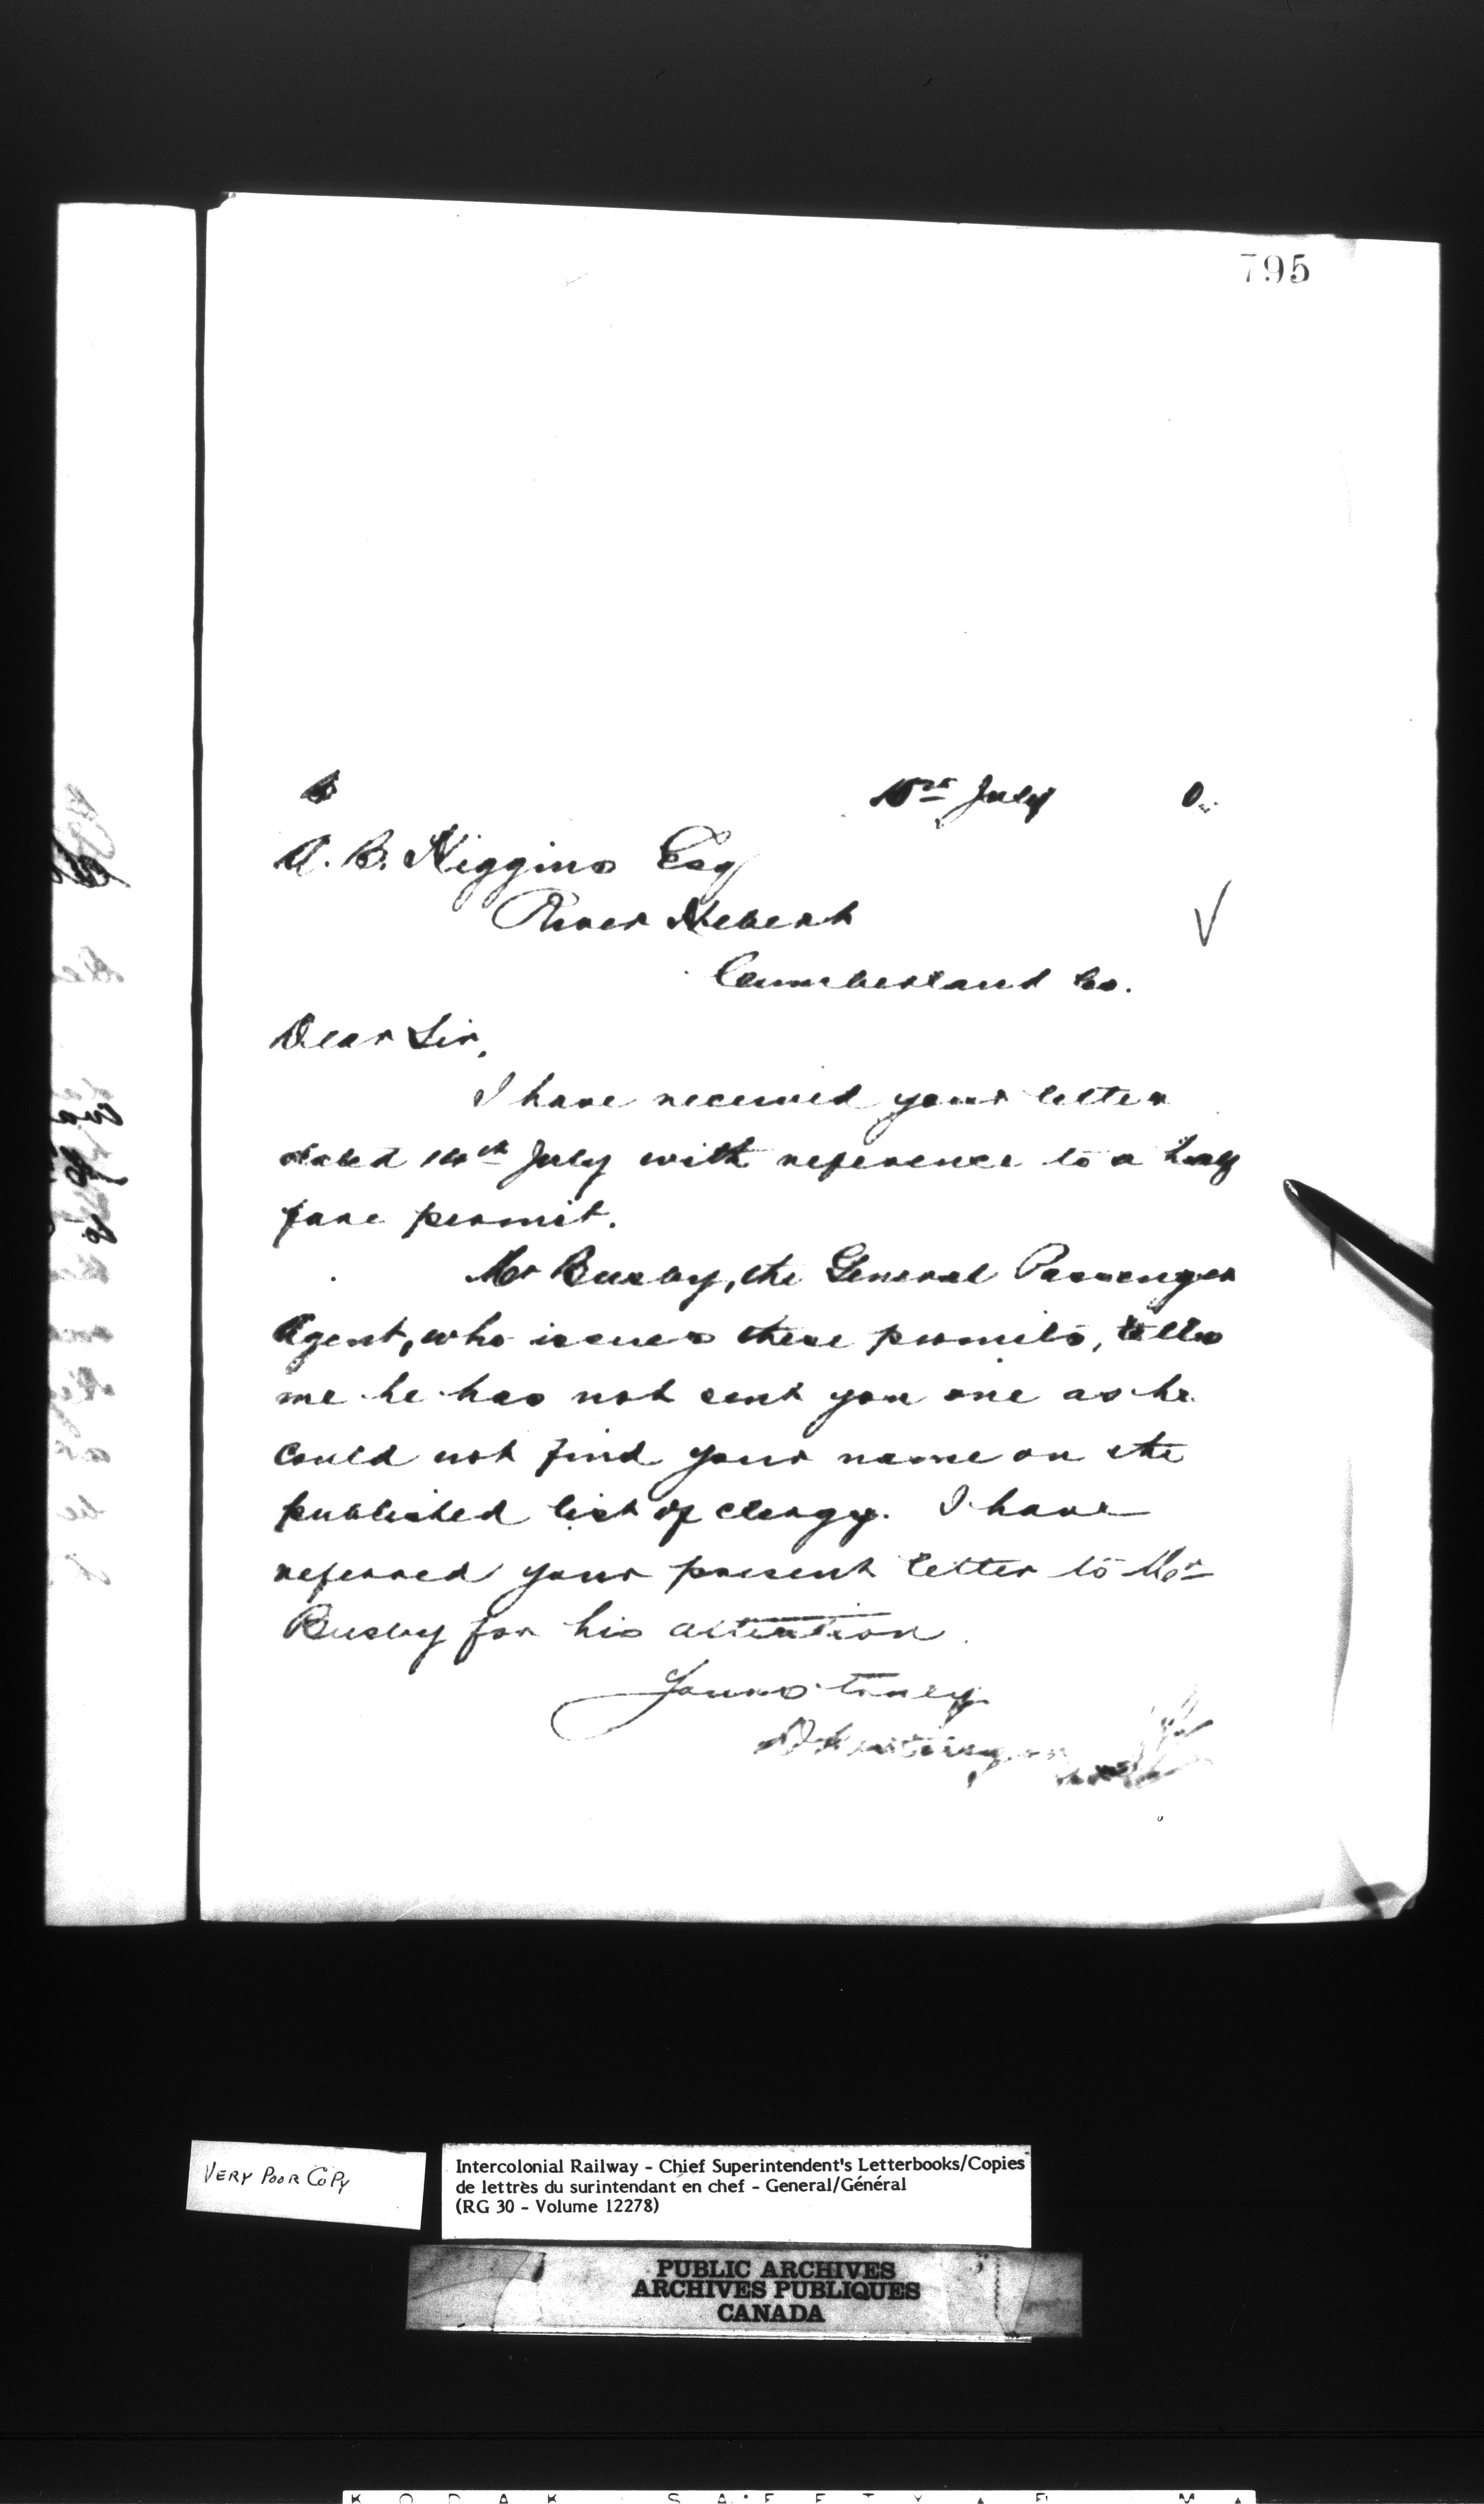 795
July
A. B. Higgins Esq
River Hebert
Cumberland Co.
Dear Sir,
I have received your letter
dated 14th July with reference to a half
fare permit.
Mr Busby, the General Passenger
Agent, who issues these permits, tells
me he has not sent you one as he
could not find your name on the
published list of clergy. I have
referred your present letter to Mr
Busby for his attention.
Yours truly
D Pottinger
VERY POOR COPY
Intercolonial Railway - Chief Superintendent's Letterbooks/Copies
de lettres du surintendant en chef - General/Général
(RG 30 - Volume 12278)
PUBLIC ARCHIVES
ARCHIVES PUBLIQUES
CANADA